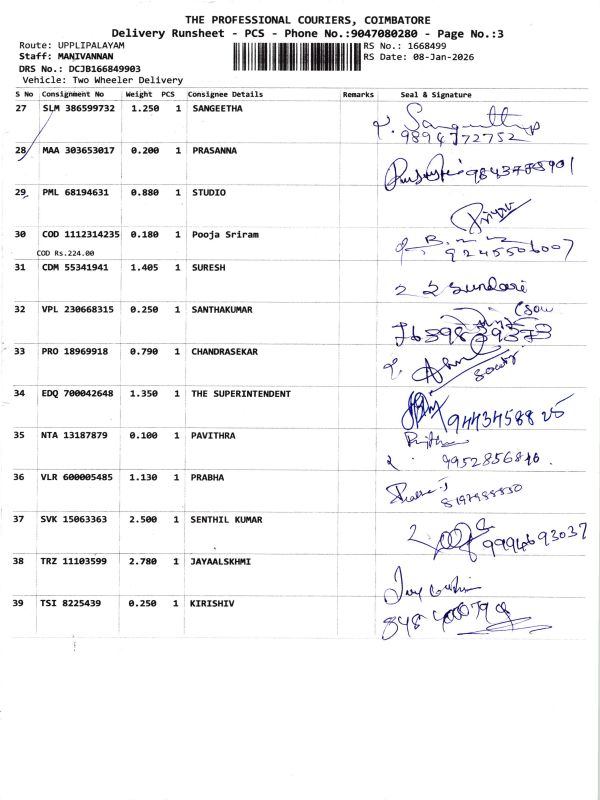 THE PROFESSIONAL COURIERS, COIMBATORE
Delivery Runsheet - PCS - Phone No.:9047080280 - Page No.:3
Route: UPPLIPALAYAM RS No.: 1668499
Staff: MANIVANNAN RS Date: 08-Jan-2026
DRS No.: DCJB166849903
Vehicle: Two Wheeler Delivery
S No Consignment No Weight PCS Consignee Details Remarks Seal & Signature
27 SLM 386599732 1.250 1 SANGEETHA
9894772752
28 MAA 303653017 0.200 1 PRASANNA
29 PML 68194631 0.880 1 STUDIO
30 COD 1112314235 0.180 1 Pooja Sriram
COD Rs.224.00 9245506007
31 CDM 55341941 1.405 1 SURESH
Sundari
32 VPL 230668315 0.250 1 SANTHAKUMAR
33 PRO 18969918 0.790 1 CHANDRASEKAR
34 EDQ 700042648 1.350 1 THE SUPERINTENDENT
35 NTA 13187879 0.100 1 PAVITHRA
36 VLR 600005485 1.130 1 PRABHA
37 SVK 15063363 2.500 1 SENTHIL KUMAR
9994693037
38 TRZ 11103599 2.780 1 JAYAALSKHMI
39 TSI 8225439 0.250 1 KIRISHIV